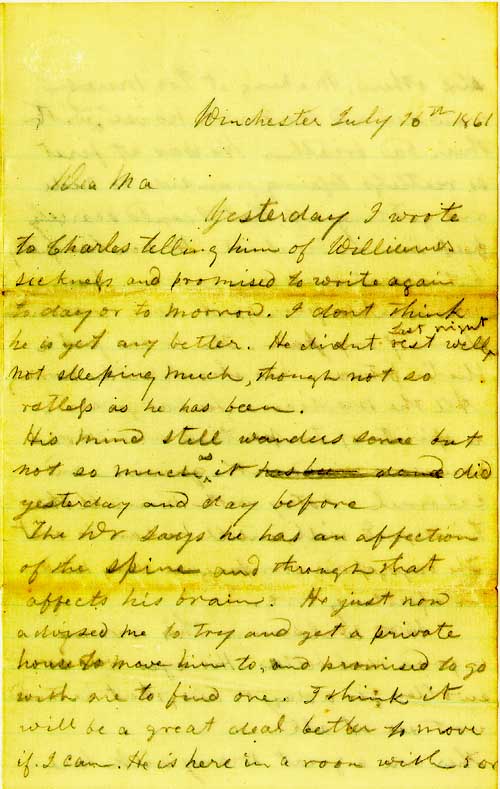 Winchester July 16th 1861
Dear Ma
Yesterday I wrote
to Charles telling him of William's
sickness and promised to write again
to day or to morrow. I dont think
he is yet any better. He didnt rest well last night
not sleeping much, though not so
restless as he has been.
His mind still wanders some but
not so much as it has been dond did
yesterday and day before
The Dr says he has an affection
of the spine and through that
affects his brain. He just now
advised me to try and get a private
house to move him to, and promised to go
with me to find one. I think it
will be a great deal better to move
if I can. He is here in a room with 5 or